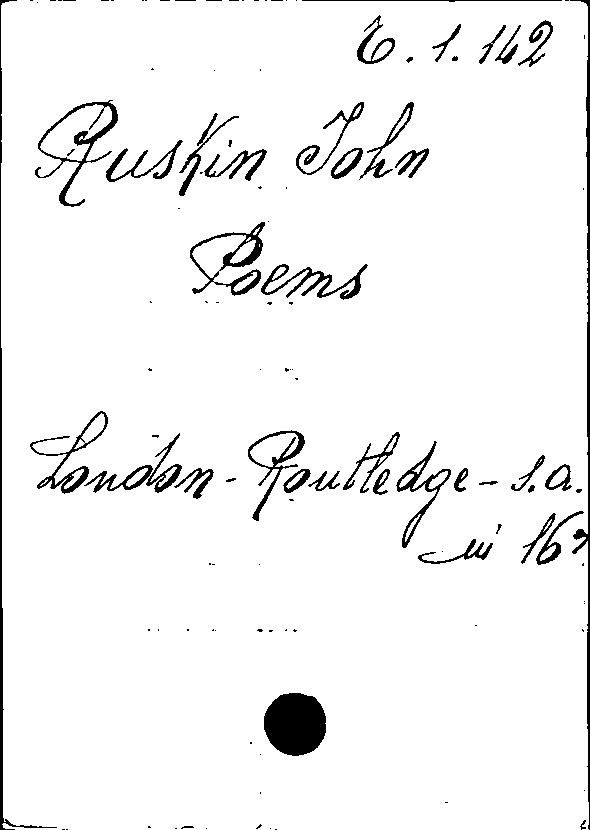 6.1.142
Ruskin John
Poems
London - Routledge - s.a.
in 16º